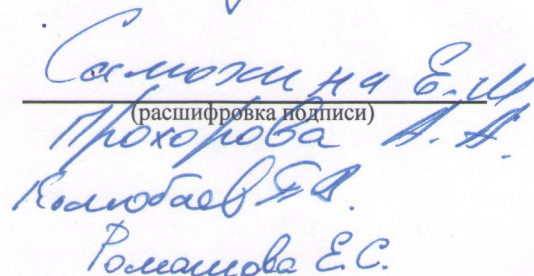 Самохина Е.М
(расшифровка подписи)
Прохорова А.А.
Колобаев
Ромашова Е.С.